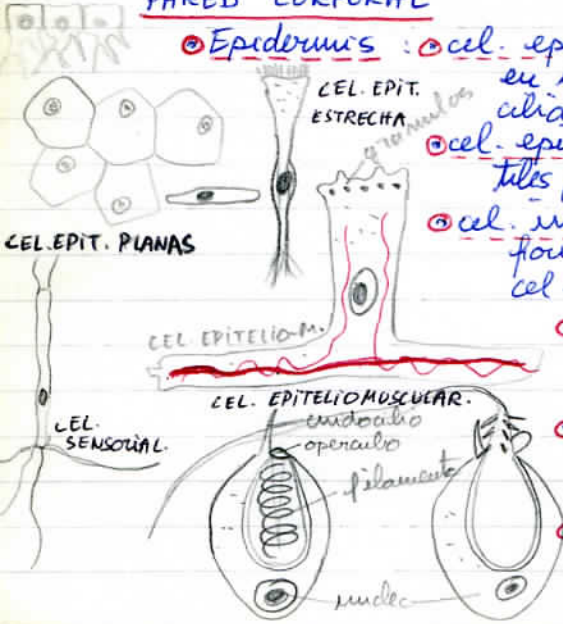 PARED CORPORAL
Epidermis : cel. ep
en
cilia
cel. epi
tiles
cel. in
for
cel
CEL. EPIT.
ESTRECHA
granulos
CEL. EPIT. PLANAS
CEL. EPITELIO-M.
CEL. EPITELIOMUSCULAR.
CEL.
SENSORIAL.
cnidocilio
operculo
filamento
nucleo